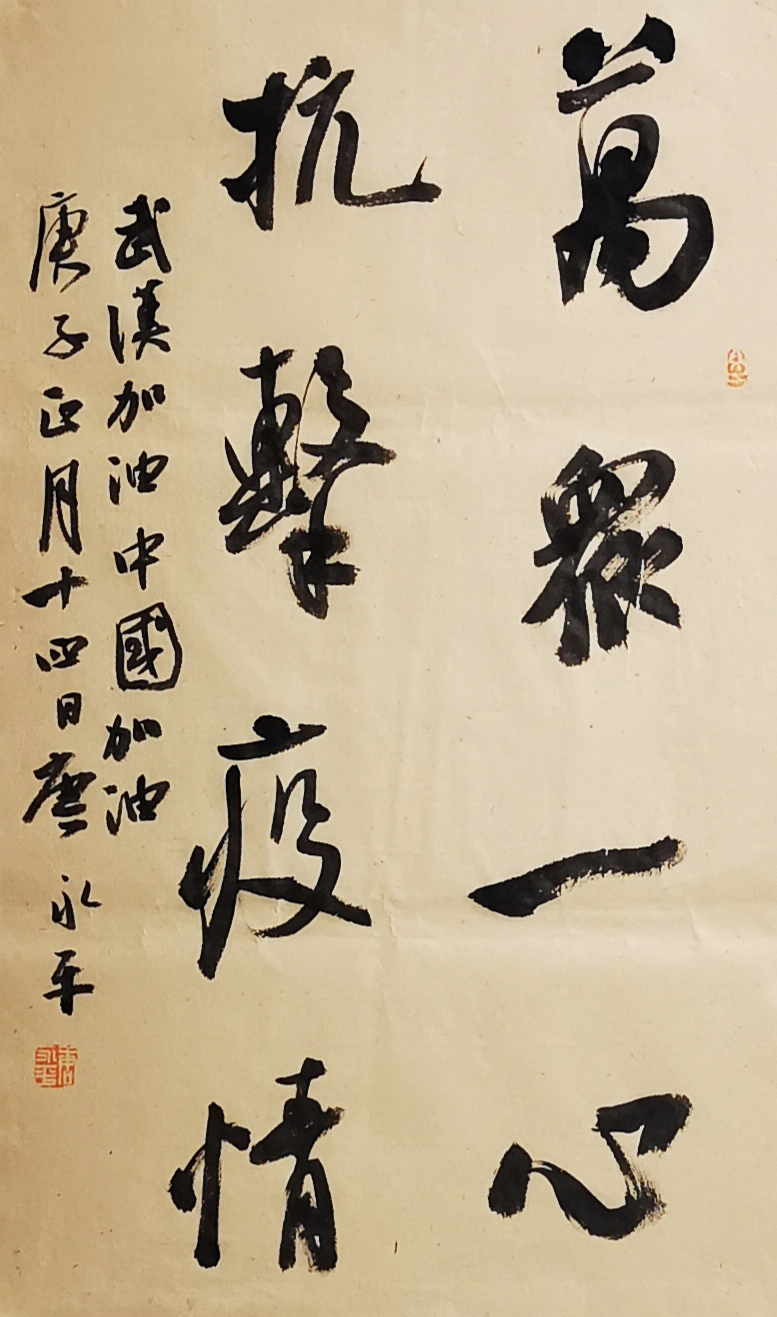 萬眾一心
抗擊疫情
武漢加油中國加油
庚子正月十四日唐永平